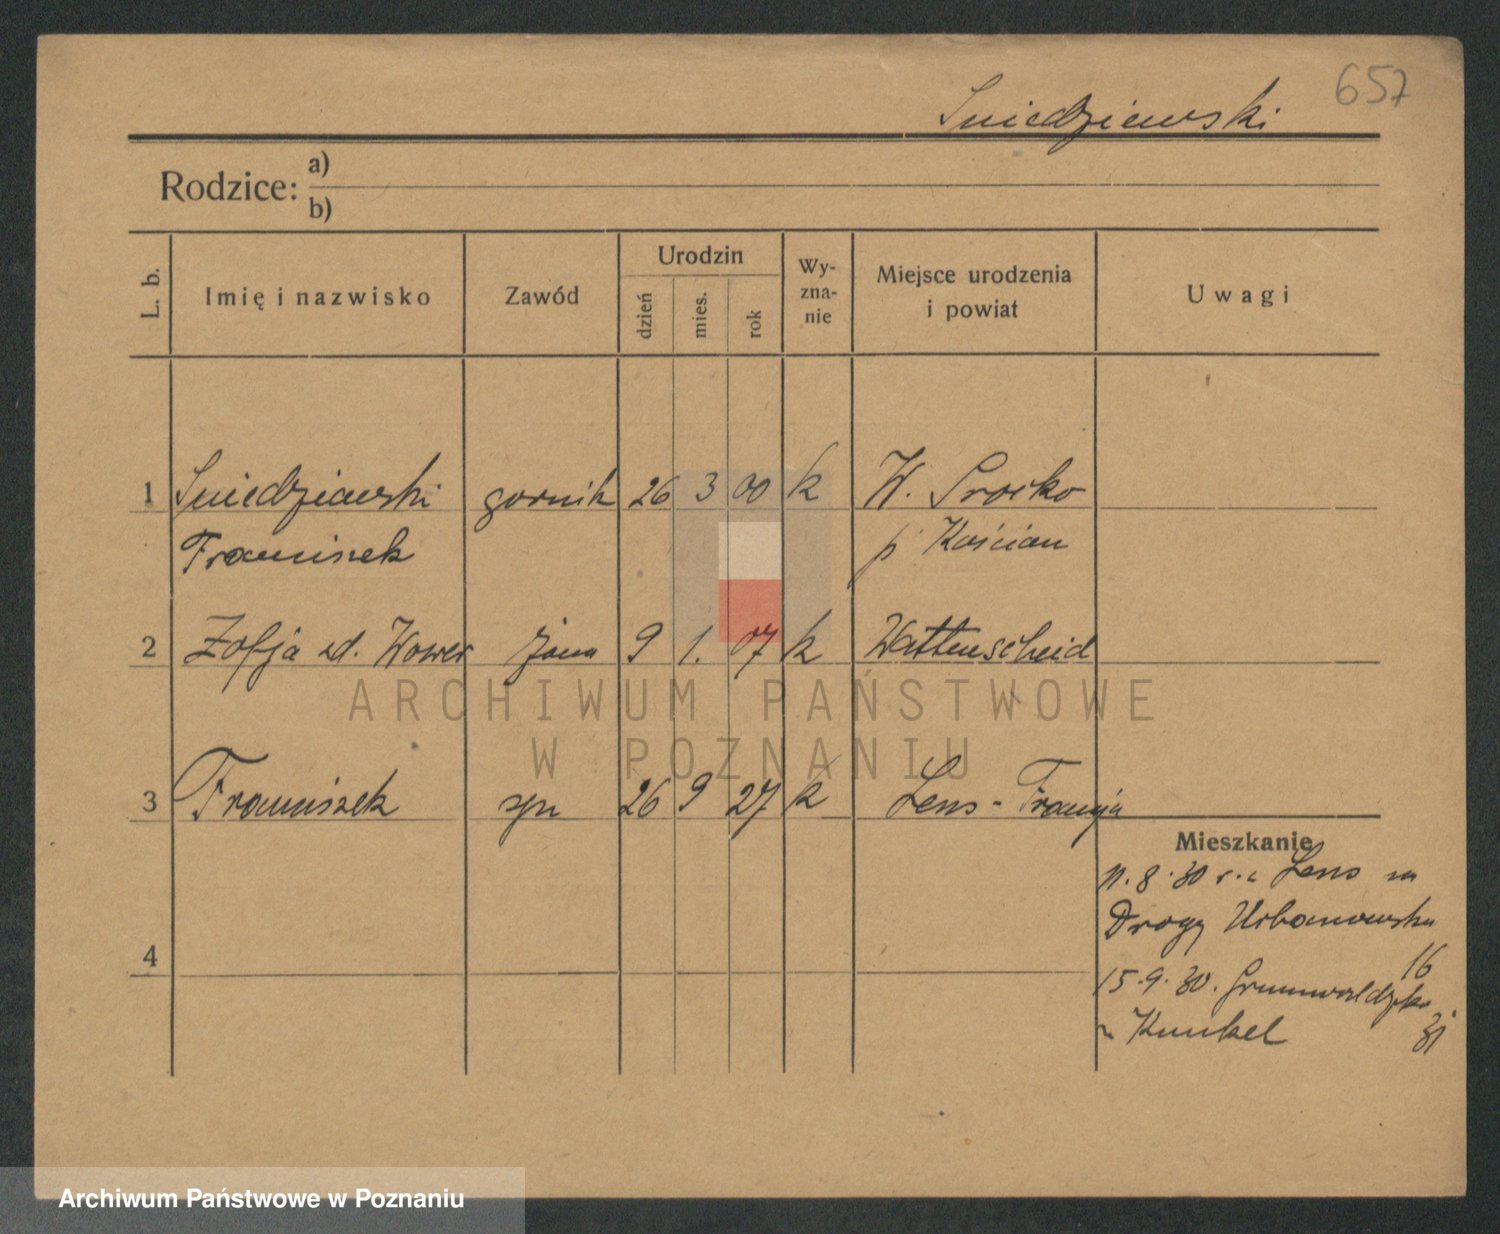 657
Sniedziewski
Rodzice: a)
b)
L. b.
Imię i nazwisko
Zawód
Urodzin
dzień
mies.
rok
Wy-
zna-
nie
Miejsce urodzenia
i powiat
Uwagi
1 Sniedziewski gornik 26 3 00 k W. Srocko
Franciszek p. Kościan
2 Zofja zd. Wower żona 9 1. 07 k Wattenscheid
ARCHIWUM PAŃSTWOWE
W POZNANIU
3 Franciszek syn 26 9 27 k Lens - Francja
Mieszkanie
11.8.30 r. z Lens na
Drogę Urbanowska
16
4
15.9.30. Grunwaldzka
u Kunkel 31
Archiwum Państwowe w Poznaniu